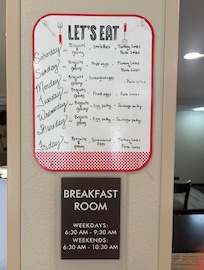 LET'S EAT
Saturday - Biscuits gravy - omlettes - Turkey links Pork links
Sunday - Biscuits gravy - Fried eggs - Turkey links Pork links
Monday - Biscuits gravy - Scrambled eggs - Pork links
Tuesday - Biscuits gravy - Fried eggs - Turkey links Pork links
Wednesday - Biscuits gravy - Egg patty - Sausage patty
Thursday - Biscuits gravy - Egg patty - Sausage patty
Friday - Biscuits & gravy - Scrambled eggs - Turkey links Pork links
BREAKFAST
ROOM
WEEKDAYS:
6:30 AM - 9:30 AM
WEEKENDS:
6:30 AM - 10:30 AM